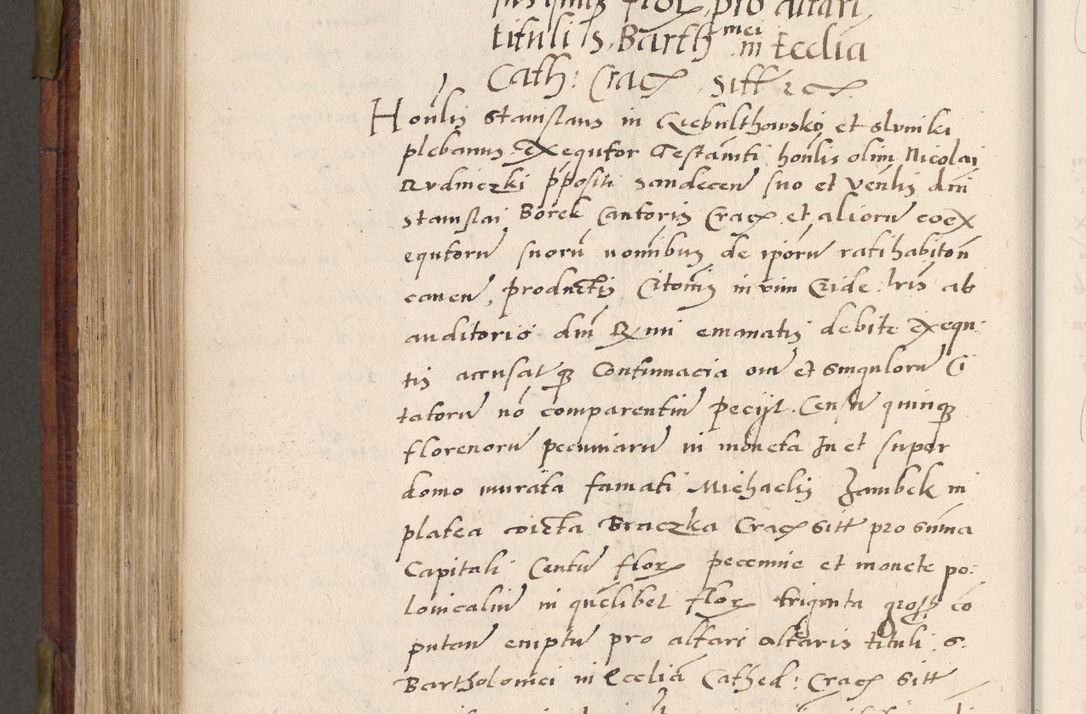 quinq flor pro altari
tituli S. Barth mei in Ecclia
Cath: Crac sitt etc
Honlis Stanislaus in Giebulthowsko et slvniki
plebanus Exequtor Testamti honlis olim Nicolai
Rvdniczki ppositi Sandecen suo et venlis dni
Stanislai Borek Cantoris Crac et aliorum coex
equtorum suorum nominibus de iporum ratihabiton
caven, productis Citonis in vim Cride lris ab
auditorio dni Rmi emanatis debite Exequ
tis accusatq Contumacia oim et singulorum Ci
tatorum no comparentium peciyt. Censum quinq
florenorum pecuniarum in moneta In et super
domo murata famati Michaelis Zambek in
platea dicta Braczka Crac sitt pro summa
Capitali Centum flor pecunie et monete po:
lonicalium in quelibet flor triginta gross co
putan emptum pro altari altaris tituli S.
Bartholomei in Ecclia Cathed: Crac sitt